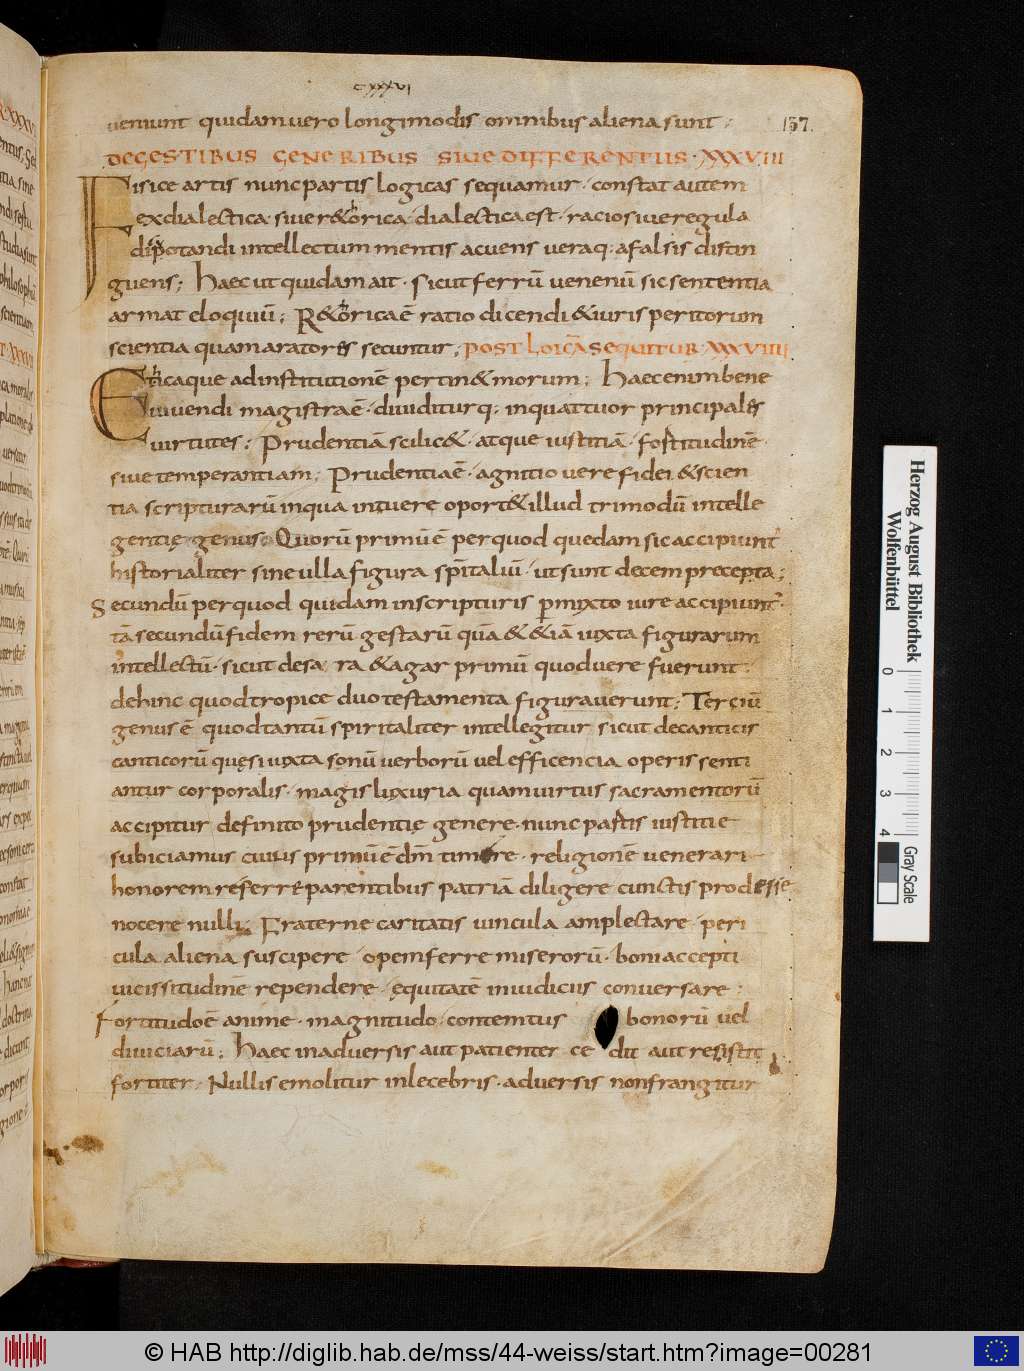 CXXXVI
ueniunt quidam uero longi modis omnibus aliena sunt
137.
DE GESTIBUS GENERIBUS SIUE DIFFERENTIIS · XXXVIII
Fisice artis nunc partis logicas sequamur · constat autem
ex dialectica siue r&horica · dialectica est · racio siue regula
disputandi intellectum mentis acuens ueraq: a falsis distin
guens ; haec ut quidam ait · sicut ferrū uenenū sic sententia
armat eloquiū ; R&horica ē ratio dicendi & iuris peritorum
scientia quam oratores secuntur ; POST LOICĀ SEQUITUR · XXXVIIII
Ethicaque ad institutionē pertin& morum ; haec enim bene
uiuendi magistra ē · diuiditurq: in quattuor principales
uirtutes ; Prudentiā scilic& · atque iustitiā · fortitudinē
siue temperantiam ; Prudentia ē · agnitio uere fidei & scien
tia scripturarū in qua intuere oport& illud trimodū intelle
gentię genus · Quorū primū ē per quod quedam sic accipiunt
historialiter sine ulla figura sp̄italiū · ut sunt decem precepta ;
Secundū per quod quidam in scripturis p̱mixto iure accipiunt ·
tā secundū fidem rerū gestarū quā & &iā iuxta figurarum
intellectū · sicut de sa ra & agar primū quod uere fuerunt
dehinc quod tropice duo testamenta figurauerunt ; Terciū
genus ē quod tantū spiritaliter intellegitur sicut de canticis
canticorū quę si iuxta sonū uerborū uel efficencia operis senti
antur corporalis · magis luxuria quam uirtus sacramentorū
accipitur definito prudentię genere · nunc partis iustitie
subiciamus cuius primū ē dm̄ timere · religionē uenerari
honorem referre parentibus patriā diligere cunctis prodesse
nocere nulli ; Fraterne caritatis uincula amplectare · peri
cula aliena suscipere · opem ferre miserorū · boni accepti
uicissitudinē rependere · ęquitatē in iudiciis conuersare ;
Fortitudo ē anime · magnitudo · contemtus bonorū uel
diuiciarū ; haec in aduersis aut patienter ce dit aut resistit
fortiter · Nullis emolitur inlecebris · aduersis non frangitur
Herzog August Bibliothek
Wolfenbüttel
0 1 2 3 4
Gray Scale
© HAB http://diglib.hab.de/mss/44-weiss/start.htm?image=00281